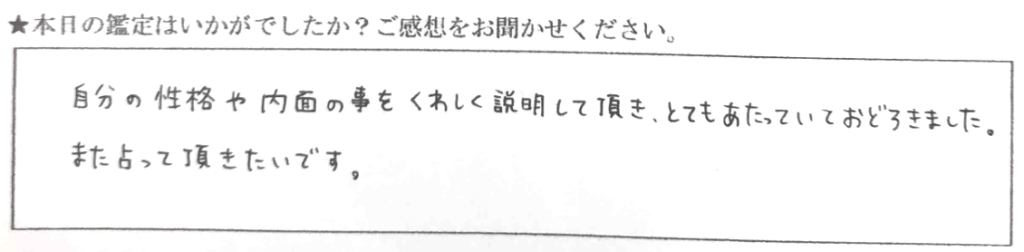 ★本日の鑑定はいかがでしたか？ご感想をお聞かせください。
自分の性格や内面の事をくわしく説明して頂き、とてもあたっていておどろきました。
また占って頂きたいです。